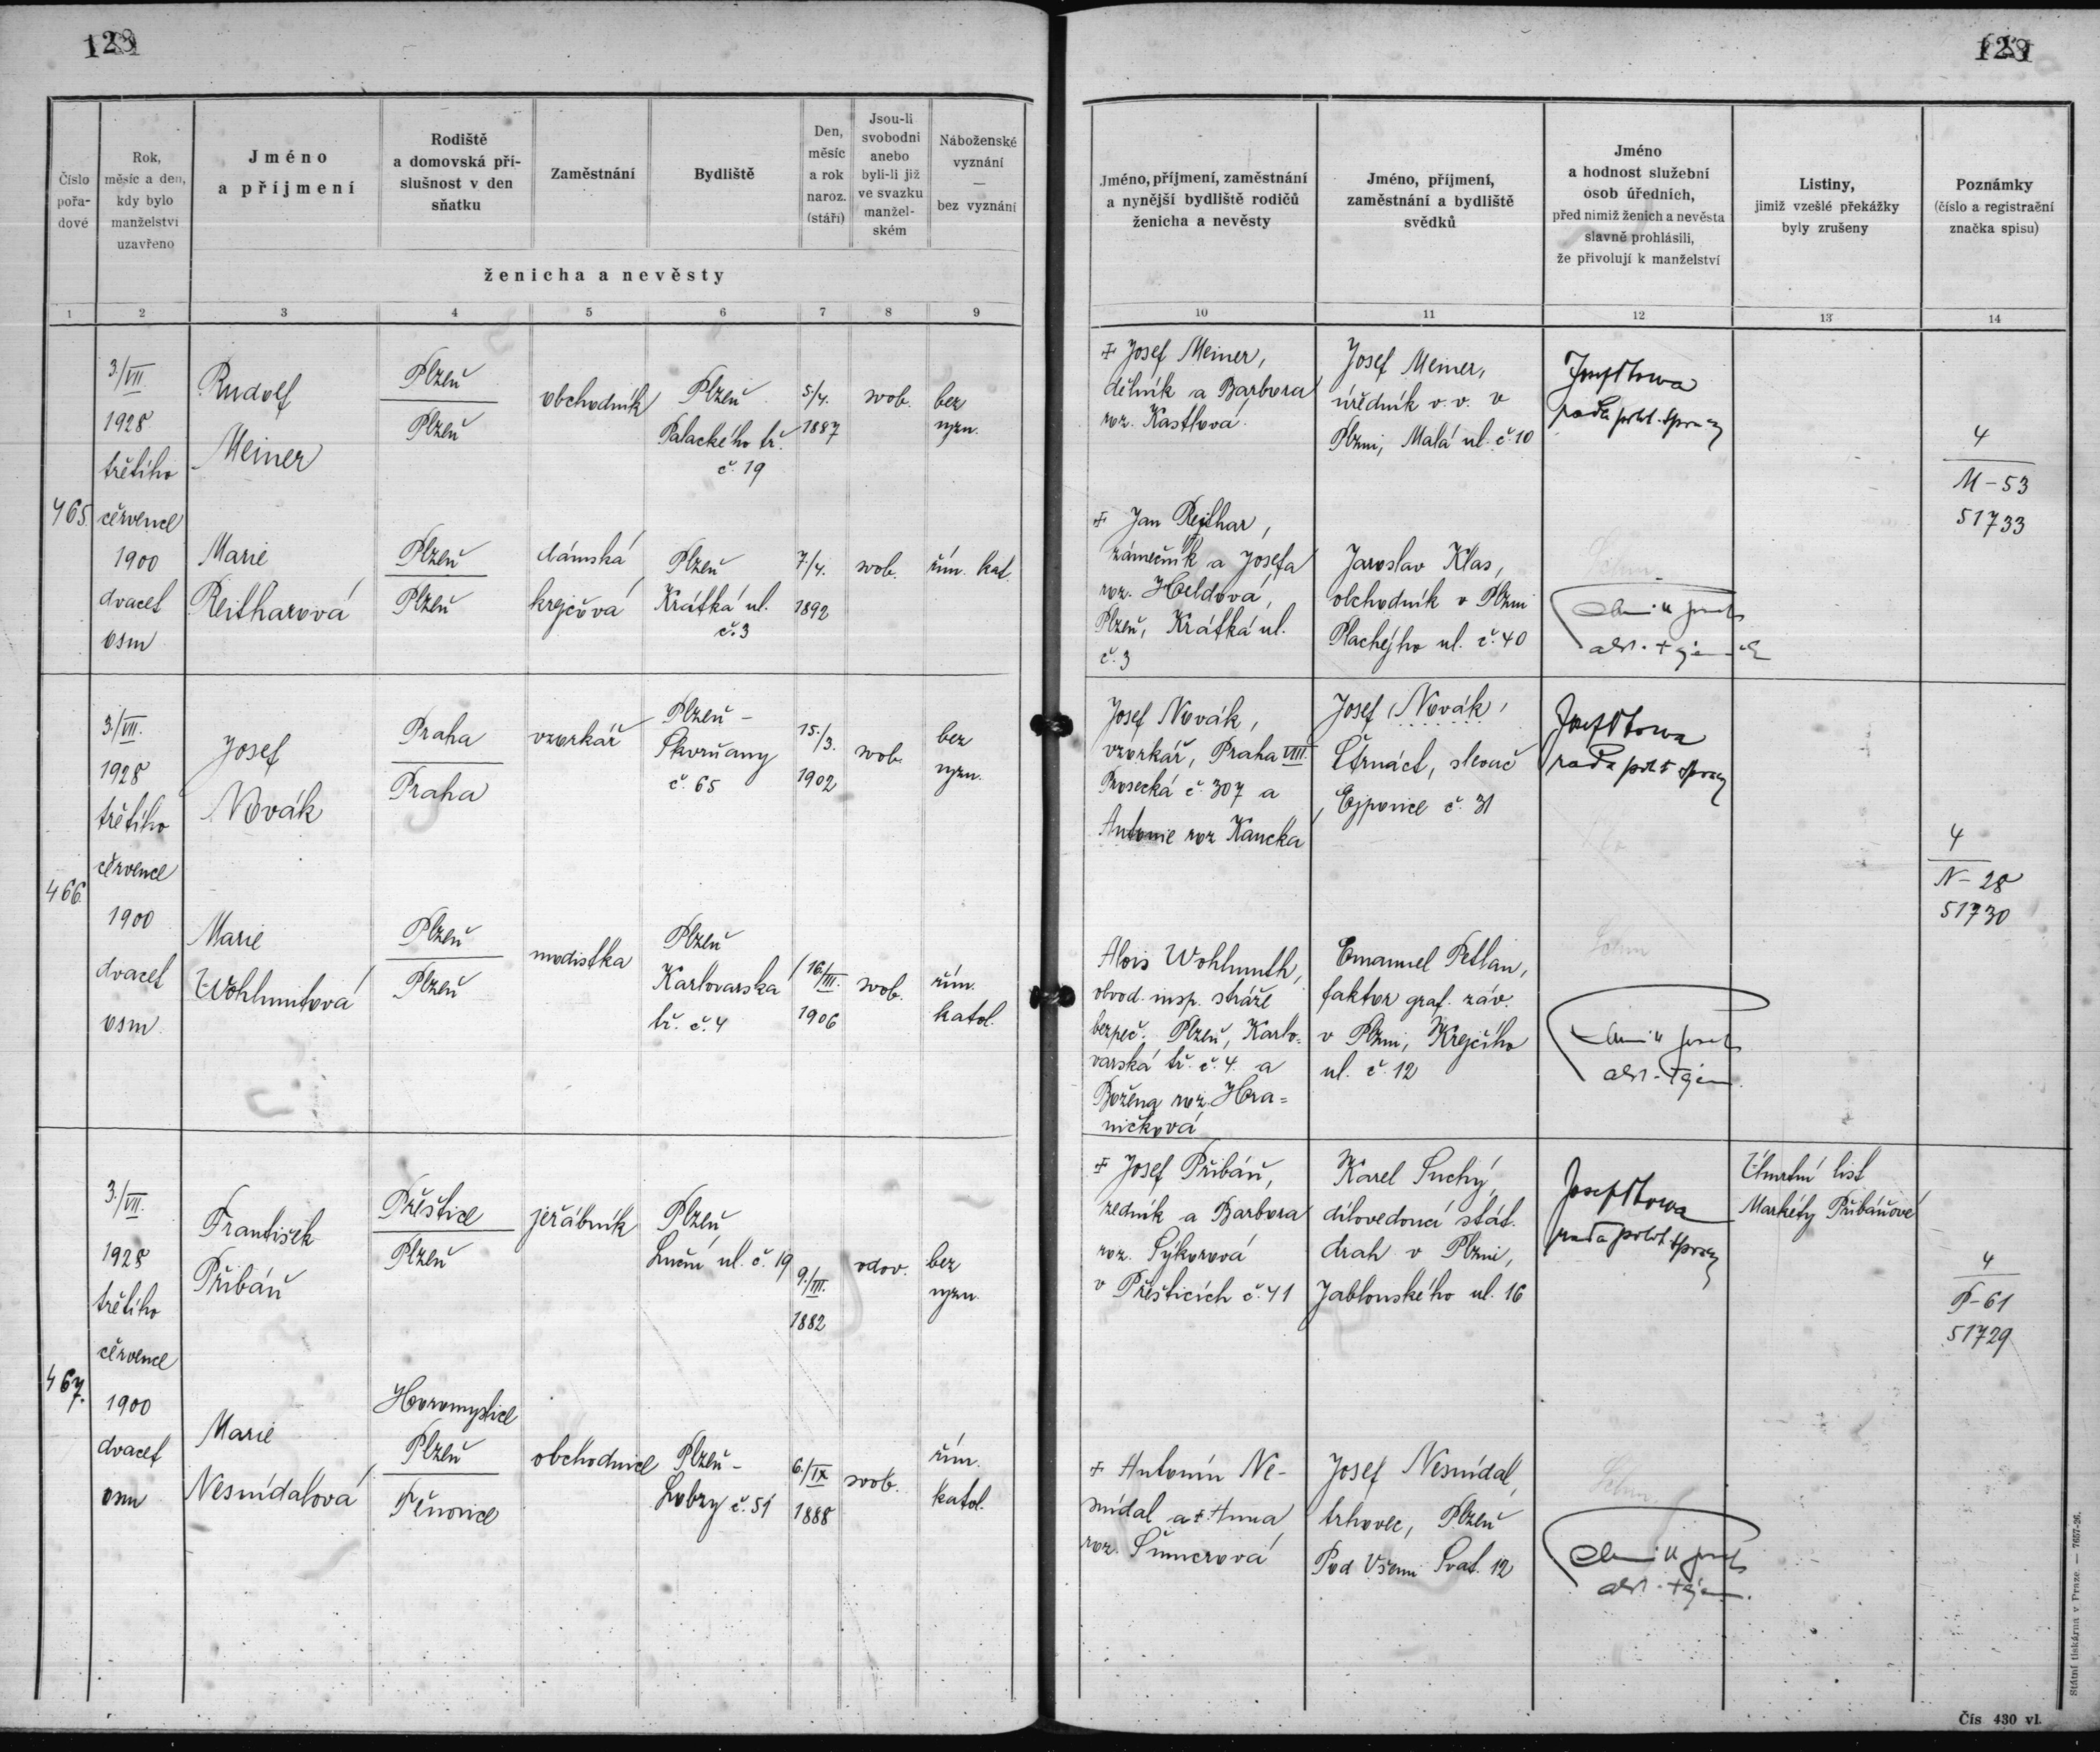 Číslo pořa-
dové
Rok,
měsíc a den,
kdy bylo
manželství
uzavřeno
Jméno
a příjmení
Rodiště
a domovská pří-
slušnost v den
sňatku
Zaměstnání
Bydliště
Den,
měsíc
a rok
naroz.
(stáří)
Jsou-li
svobodni
anebo
byli-li již
ve svazku
manžel-
ském
Náboženské
vyznání
—
bez vyznání
ženicha a nevěsty
Jméno, příjmení, zaměstnání
a nynější bydliště rodičů
ženicha a nevěsty
Jméno, příjmení,
zaměstnání a bydliště
svědků
Jméno
a hodnost služební
osob úředních,
před nimiž ženich a nevěsta
slavně prohlásili,
že přivolují k manželství
Listiny,
jimiž vzešlé překážky
byly zrušeny
Poznámky
(číslo a registrační
značka spisu)
1 2 3 4 5 6 7 8 9 10 11 12 13 14
465.
3./VII.
1928
třetího
července
1900
dvacet
osm
Rudolf
Meiner
Plzeň
Plzeň
obchodník
Plzeň
Palackého tř.
č. 19
5./4.
1887
svob.
bez
vyzn.
Marie
Reitharová
Plzeň
Plzeň
dámská
krejčová
Plzeň
Krátká ul.
č. 3
7./4.
1892
svob.
řím. kat.
+ Josef Meiner,
dělník a Barbora
roz. Kastlová
+ Jan Rejthar,
zámečník a Josefa
roz. Heldová,
Plzeň, Krátká ul.
č. 3
Josef Meiner,
úředník v. v. v
Plzni, Malá ul. č. 10
Jaroslav Klas,
obchodník v Plzni
Plachého ul. č. 40
rada polit. správy
4
M-53
51733
466.
3./VII.
1928
třetího
července
1900
dvacet
osm.
Josef
Novák
Praha
Praha
vzorkář
Plzeň -
Skvrňany
č. 65
15./3.
1902
svob.
bez
vyzn.
Marie
Wohlmutová
Plzeň
Plzeň
modistka
Plzeň
Karlovarská
tř. č. 4
16./III.
1906
svob.
řím.
katol.
Josef Novák,
vzorkář, Praha VIII.
Prosecká č. 307 a
Antonie roz. Kancká
Alois Wohlmuth,
obvod. insp. stráže
bezpeč. Plzeň, Karlo-
varská tř. č. 4. a
Božena roz. Hra=
ničková
Josef Novák,
Čtrnáct, slevač
Ejpovice č. 31
Emanuel Petlan,
faktor graf. záv.
v Plzni, Krejčího
ul. č. 12
rada polit. správy
4
N-28
51730
467.
3./VII.
1928
třetího
července
1900
dvacet
osm
František
Přibáň
Přeštice
Plzeň
jeřábník
Plzeň,
Luční ul. č. 19
9./III.
1882
vdov.
bez
vyzn.
Marie
Nesnídalová
Horomyslice
Plzeň
Těnovice
obchodnice
Plzeň -
Lobzy č. 51
6./IX
1888
svob.
řím.
katol.
+ Josef Přibáň,
zedník a Barbora
roz. Sýkorová
v Přešticích č. 41
+ Antonín Ne-
snídal a + Anna
roz. Šumerová
Karel Suchý,
dílovedoucí stát.
drah v Plzni,
Jablonského ul. 16
Josef Nesnídal,
trhovec, Plzeň
Pod Všemi Svat. 12
rada polit. správy
Úmrtní list
Markéty Přibáňové
4
P-61
51729
Státní tiskárna v Praze. — 7657-26.
Čís 430 vl.